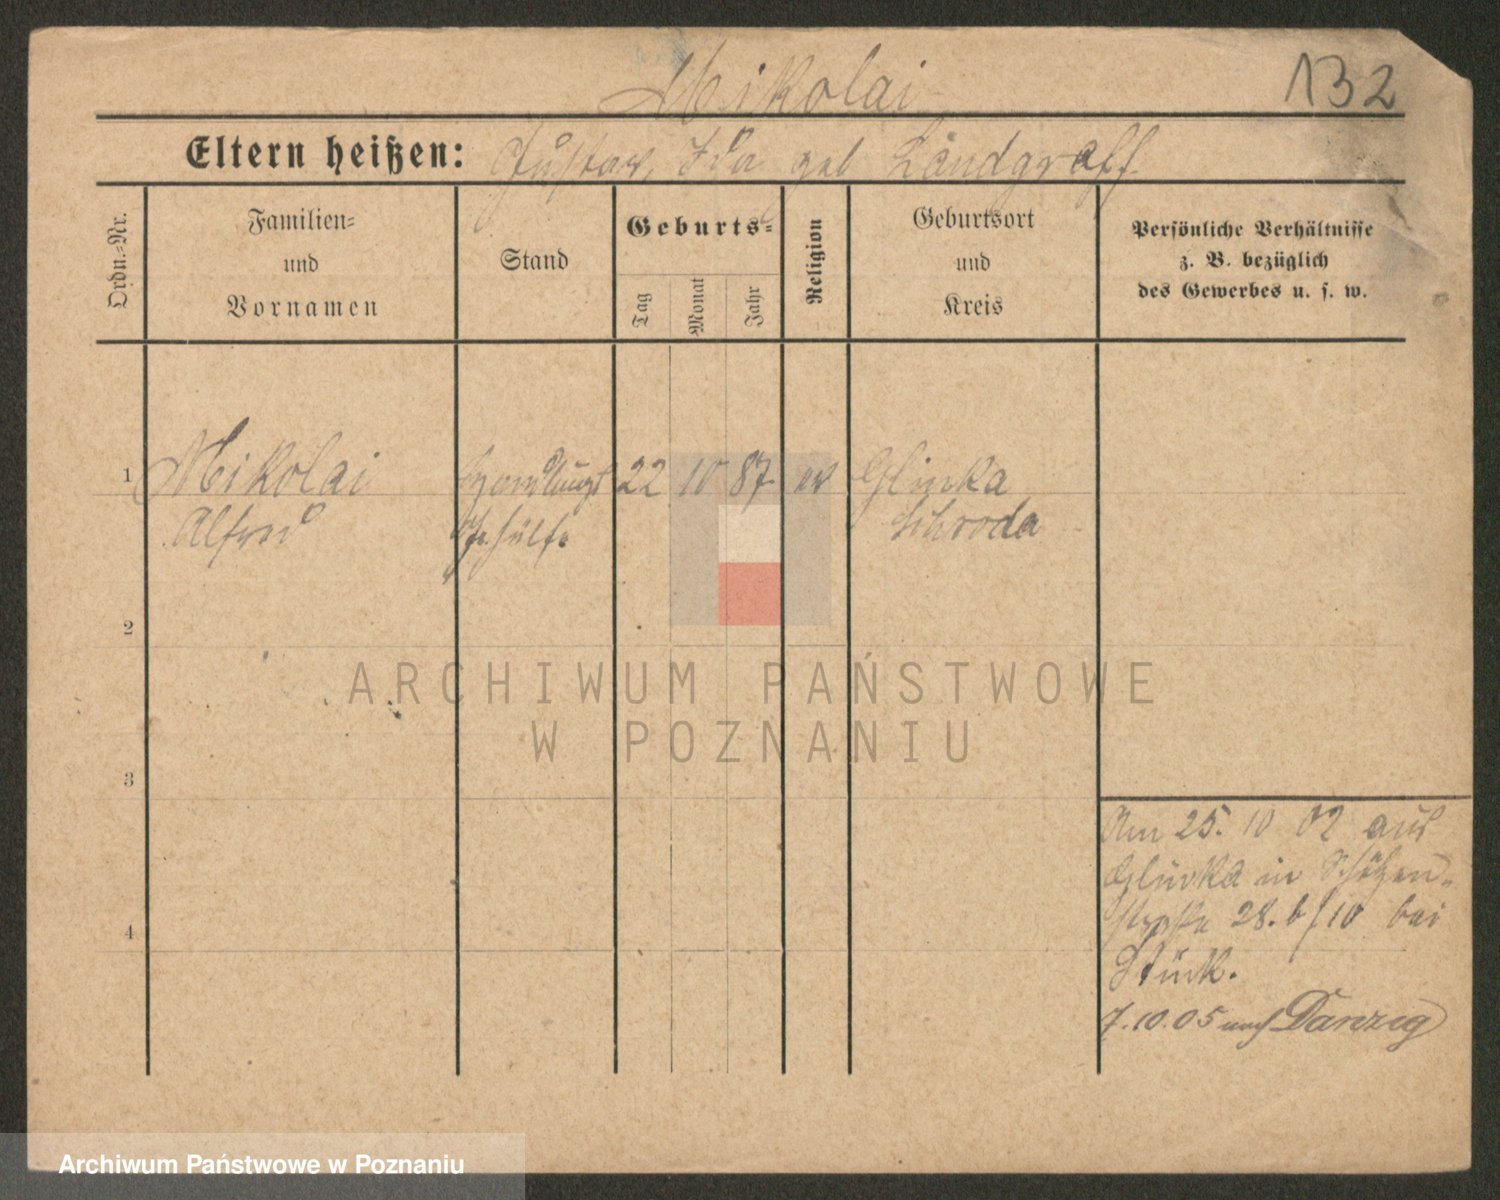 Mikolai
132
Eltern heißen: Gustav, Ida geb Landgraff
Ordn.-Nr.
Familien-
und
Vornamen
Stand
Geburts-
Tag
Monat
Jahr
Religion
Geburtsort
und
Kreis
Persönliche Verhältnisse
z. B. bezüglich
des Gewerbes u. s. w.
1 Mikolai Handlungs 22 10 87 ev Glinka
Alfred Gehülfe Schroda
2
ARCHIWUM PAŃSTWOWE
W POZNANIU
3
Am 25. 10 02 aus
Glinka in Schützen-
straße 28. b/10 bei
Stück.
4
7.10.05 nach Danzig
Archiwum Państwowe w Poznaniu